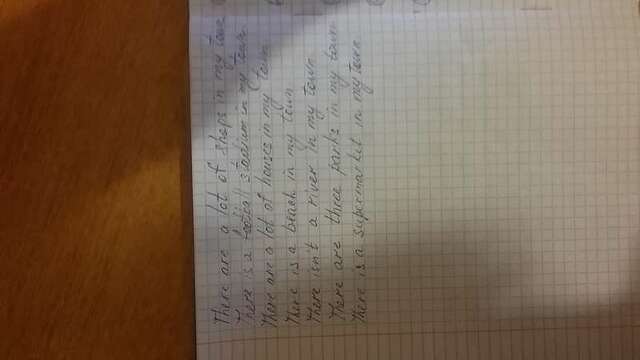 There are a lot of shops in my town
There is a football stadium in my town
There are a lot of houses in my town
There is a beach in my town
There isn't a river in my town
There are three parks in my town
There is a supermarket in my town